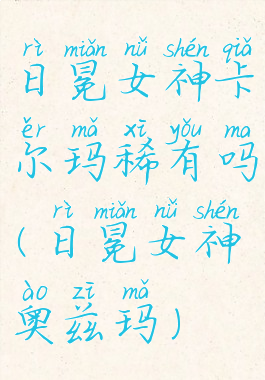 rì miǎn nǔ shén qiǎ
日冕女神卡
ěr mǎ xī yǒu ma
尔玛稀有吗
rì miǎn nǔ shén
(日冕女神
ào zī mǎ
奥兹玛)